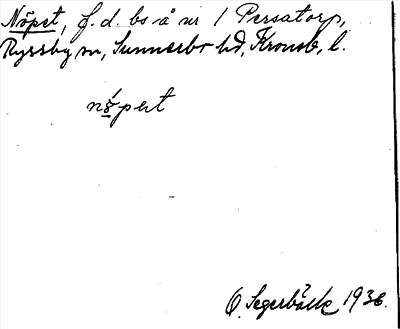 Nöpet, f. d. bs å nr 1 Persatorp,
Ryssby sn, Sunnerbo hd, Kronob. l.
nö́pet
O. Segerbäck 1936.